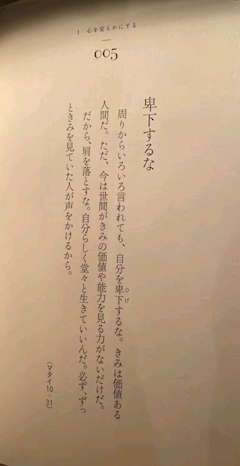 1 心を安らかにする
005
卑下するな
周りからいろいろ言われても、自分を卑下するな。きみは価値ある
人間だ。ただ、今は世間がきみの価値や能力を見る力がないだけだ。
だから、肩を落とすな。自分らしく堂々と生きていいんだ。必ず、ずっ
ときみを見ていた人が声をかけるから。
(マタイ10・31)